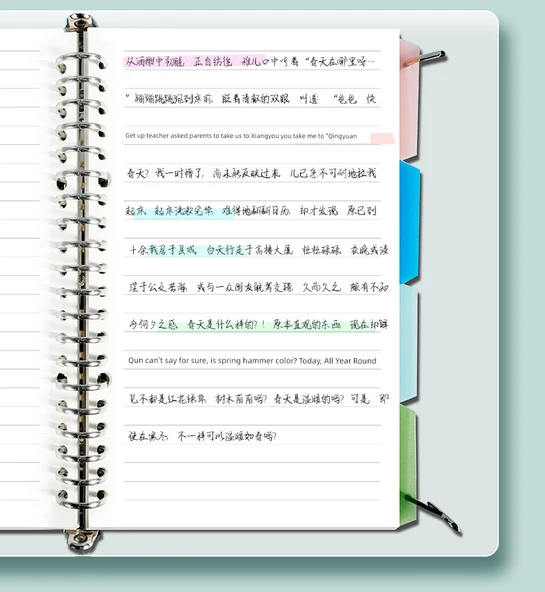 从酒酣中初醒 正自彷徨 雏儿口中哼着 “春天在哪里呀…
” 蹦蹦跳跳跑到床前 眨着清澈的双眼 叫道 “爸爸 快
Get up teacher asked parents to take us to Xiangyou you take me to "Qingyuan
春天? 我一时懵了 尚未能反映过来 儿已急不可耐地拉我
起床 起床洗漱完毕 难得地翻翻日历 却才发现 原已到
十余 我居于县城 白天行走于高楼大厦 忙忙碌碌 夜晚或浸
淫于公文苦海 或与一众朋友觥筹交错 久而久之 颇有不知
今何夕之惑 春天是什么样的?! 原本直观的东西 现在却
Qun can't say for sure, is spring hammer color? Today, All Year Round
见不都是红花绿草 树木葱葱吗? 春天是温暖的吗? 可是 即
使在寒冬 不一样可以温暖如春吗?